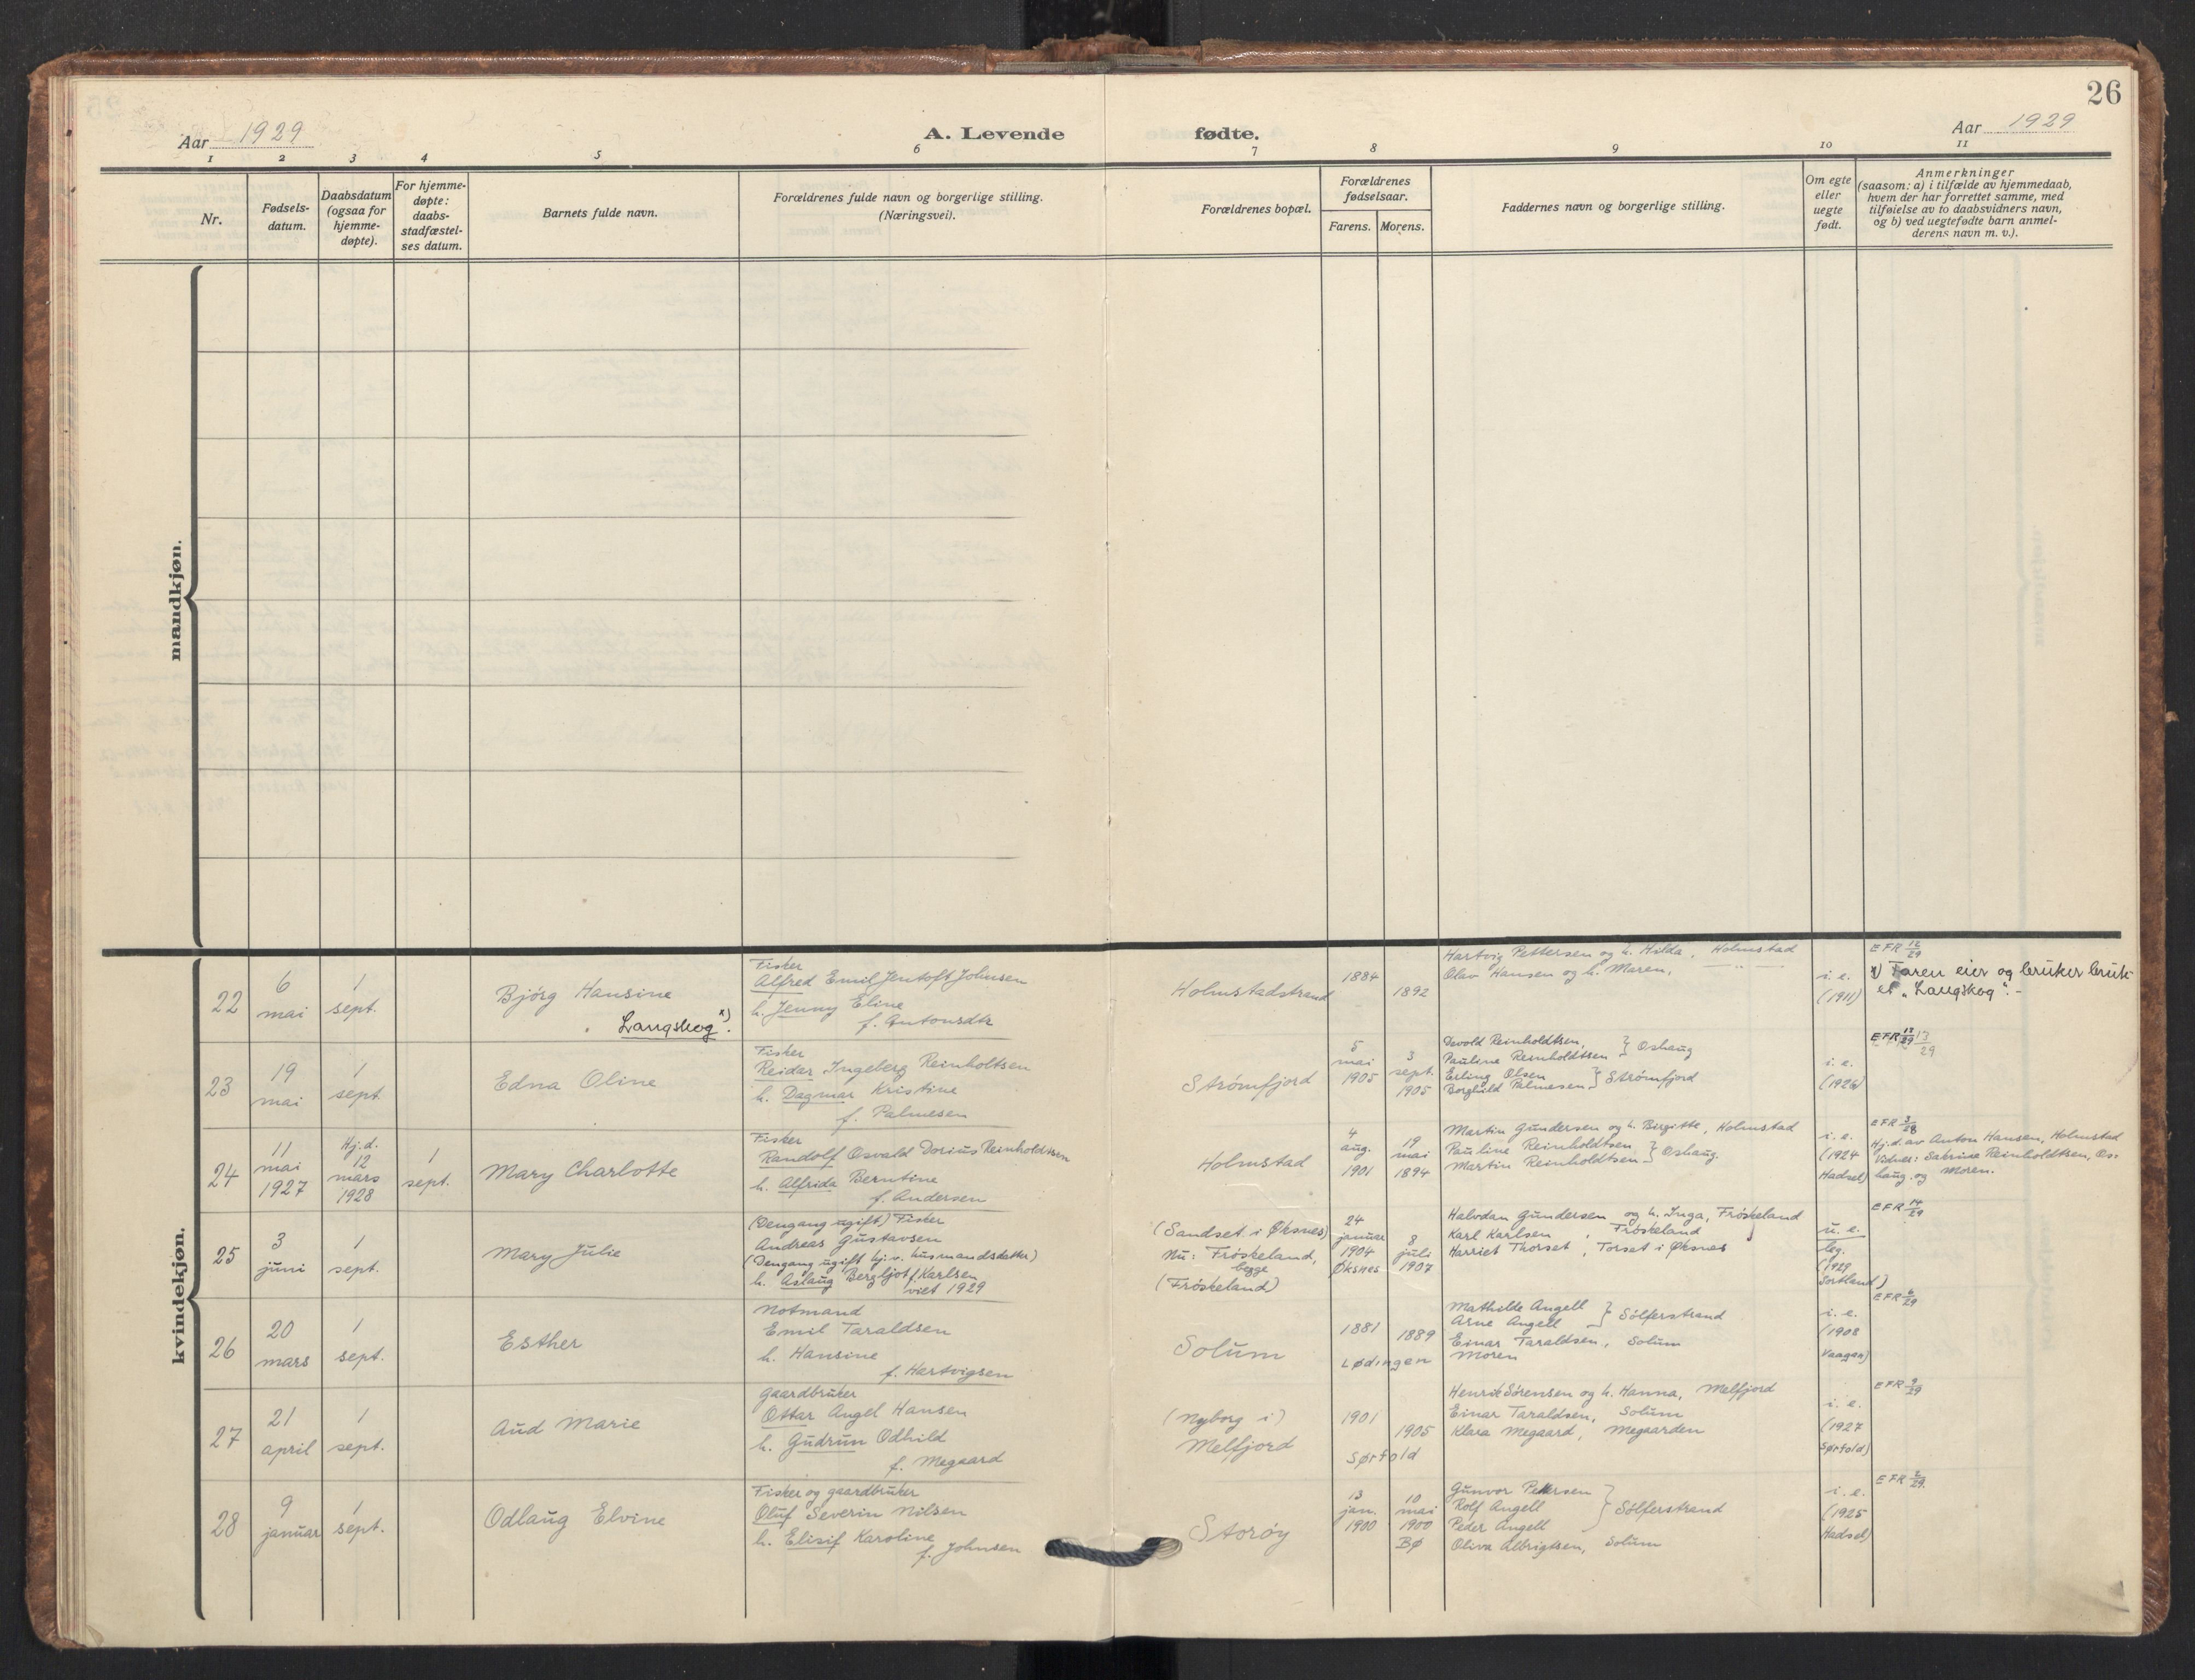 26
Aar 1929
A. Levende fødte.
Aar 1929
1 2 3 4 5 6 7 8 9 10 11
Nr.
Fødsels-
datum.
Daabsdatum
(ogsaa for
hjemme-
døpte).
For hjemme-
døpte:
daabs-
stadfæstel-
ses datum.
Barnets fulde navn.
Forældrenes fulde navn og borgerlige stilling.
(Næringsvei).
Forældrenes bopæl.
Forældrenes
fødselsaar.
Farens. Morens.
Faddernes navn og borgerlige stilling.
Om egte
eller
uegte
født.
Anmerkninger
(saasom: a) i tilfælde av hjemmedaab,
hvem der har forrettet samme, med
tilføielse av to daabsvidners navn,
og b) ved uegtefødte barn anmel-
derens navn m. v.).
mandkjøn.
kvindekjøn.
22
6
mai
1
sept.
Bjørg Hansine
Langskog x).
Fisker
Alfred Emil Jentoft Johnsen
h. Jenny Eline
f. Antonsdtr
Holmstadstrand
1884
1892
Hartvig Pettersen og h. Hilda, Holmstad
Olav Hansen og h. Maren, " "
i. e.
(1911)
EFR 12/29
x) Faren eier og bruker bruk-
et "Langskog".-
23
19
mai
1
sept.
Edna Oline
Fisker
Reidar Ingeberg Reinholtsen
h. Dagmar Kristine
f. Palmesen
Strømfjord
5
mai
1905
3
sept.
1905
Osvold Reinholdtsen,
Pauline Reinholdtsen } Oshaug
Erling Olsen
Borghild Palmesen } Strømfjord
i. e.
(1926)
EFR 13/29 13/29
24
11
mai
1927
Hj.d.
12
mars
1928
1
sept.
Mary Charlotte
Fisker
Randolf Osvald Dorius Reinholdtsen
h. Alfrida Berntine
f. Andersen
Holmstad
4
aug.
1901
19
mai
1894
Martin Gundersen og h. Birgitte, Holmstad
Pauline Reinholdtsen
Martin Reinholdtsen } Oshaug.
i. e.
(1924
Hadsel)
EFR 3/28
Hj.d. av Anton Hansen, Holmstad
Vidner: Sabrine Reinholdtsen, Os-
haug. og Moren.
25
3
juni
1
sept.
Mary Julie
(Dengang ugift) Fisker
Andreas Gustavsen
(Dengang ugift hj.v. husmandsdatter)
h. Aslaug Bergljot f. Karlsen
viet 1929
(Sandset i Øksnes)
Nu: Frøskeland,
begge
(Frøskeland)
24
januar
1904
Øksnes
8
juli
1907
Halvdan Gundersen og h. Inga, Frøskeland
Karl Karlsen, Frøskeland
Harriet Thorset, Torset i Øksnes
u. e.
leg.
(1929
Sortland)
EFR 14/29
26
20
mars
1
sept.
Esther
Notmand
Emil Taraldsen
h. Hansine
f. Hartvigsen
Solum
1881
1889
Lødingen
Mathilde Angell
Arne Angell } Sølferstrand
Einar Taraldsen, Solum
Moren
i. e.
(1908
Vaagan)
EFR 6/29
27
21
april
1
sept.
Aud Marie
Gaardbruker
Ottar Angel Hansen
h. Gudrun Odhild
f. Megaard
(Nyborg i)
Melfjord
1901
1905
Sørfold
Henrik Sørensen og h. Hanna, Melfjord
Einar Taraldsen, Solum
Klara Megaard, Megaarden
i. e.
(1927
Sørfold)
EFR 9/29
28
9
januar
1
sept.
Odlaug Elvine
Fisker og gaardbruker
Oluf Severin Nilsen
h. Elisif Karoline
f. Johnsen
Storøy
13
jan.
1900
10
mai
1900
BØ
Gunvor Pettersen
Rolf Angell
Peder Angell } Sølferstrand
Oliva Albrigtsen, Solum
i. e.
(1925
Hadsel)
EFR 2/29.